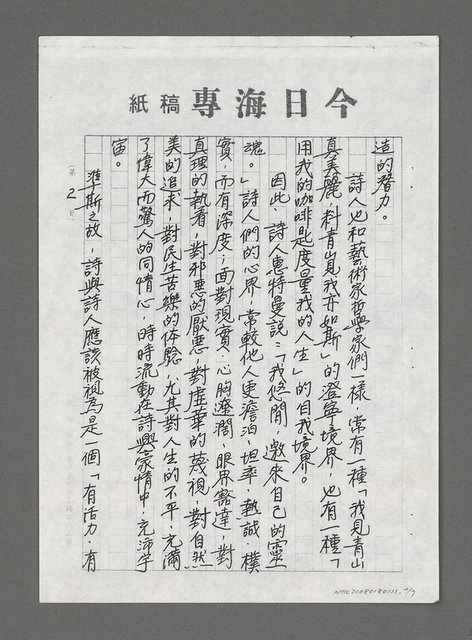 今日海專稿紙
造的潛力。
詩人也和藝術家哲學家們一樣，常有一種「我見青山
真美麗，料青山見我亦如斯」的澄寧境界，也有一種「
用我的咖啡匙度量我的人生」的自我境界。
因此，詩人惠特曼說：「我悠閒，邀來自己的靈
魂。」詩人們的心界，常較他人更澹泊，坦率，熱誠，樸
實，而有深度，面對現實，心胸遼濶，眼界豁達，對
真理的執着，對邪惡的厭惡，對虛華的蔑視，對自然
美的追求，對民生苦樂的体驗，尤其對人生的不平，充滿
了偉大而驚人的同情心，時時流動在詩興豪情中，充沛宇
宙。
準斯之故，詩與詩人應該被視為是一個「有活力，有
第2頁
NMTL20080180111, 2/7